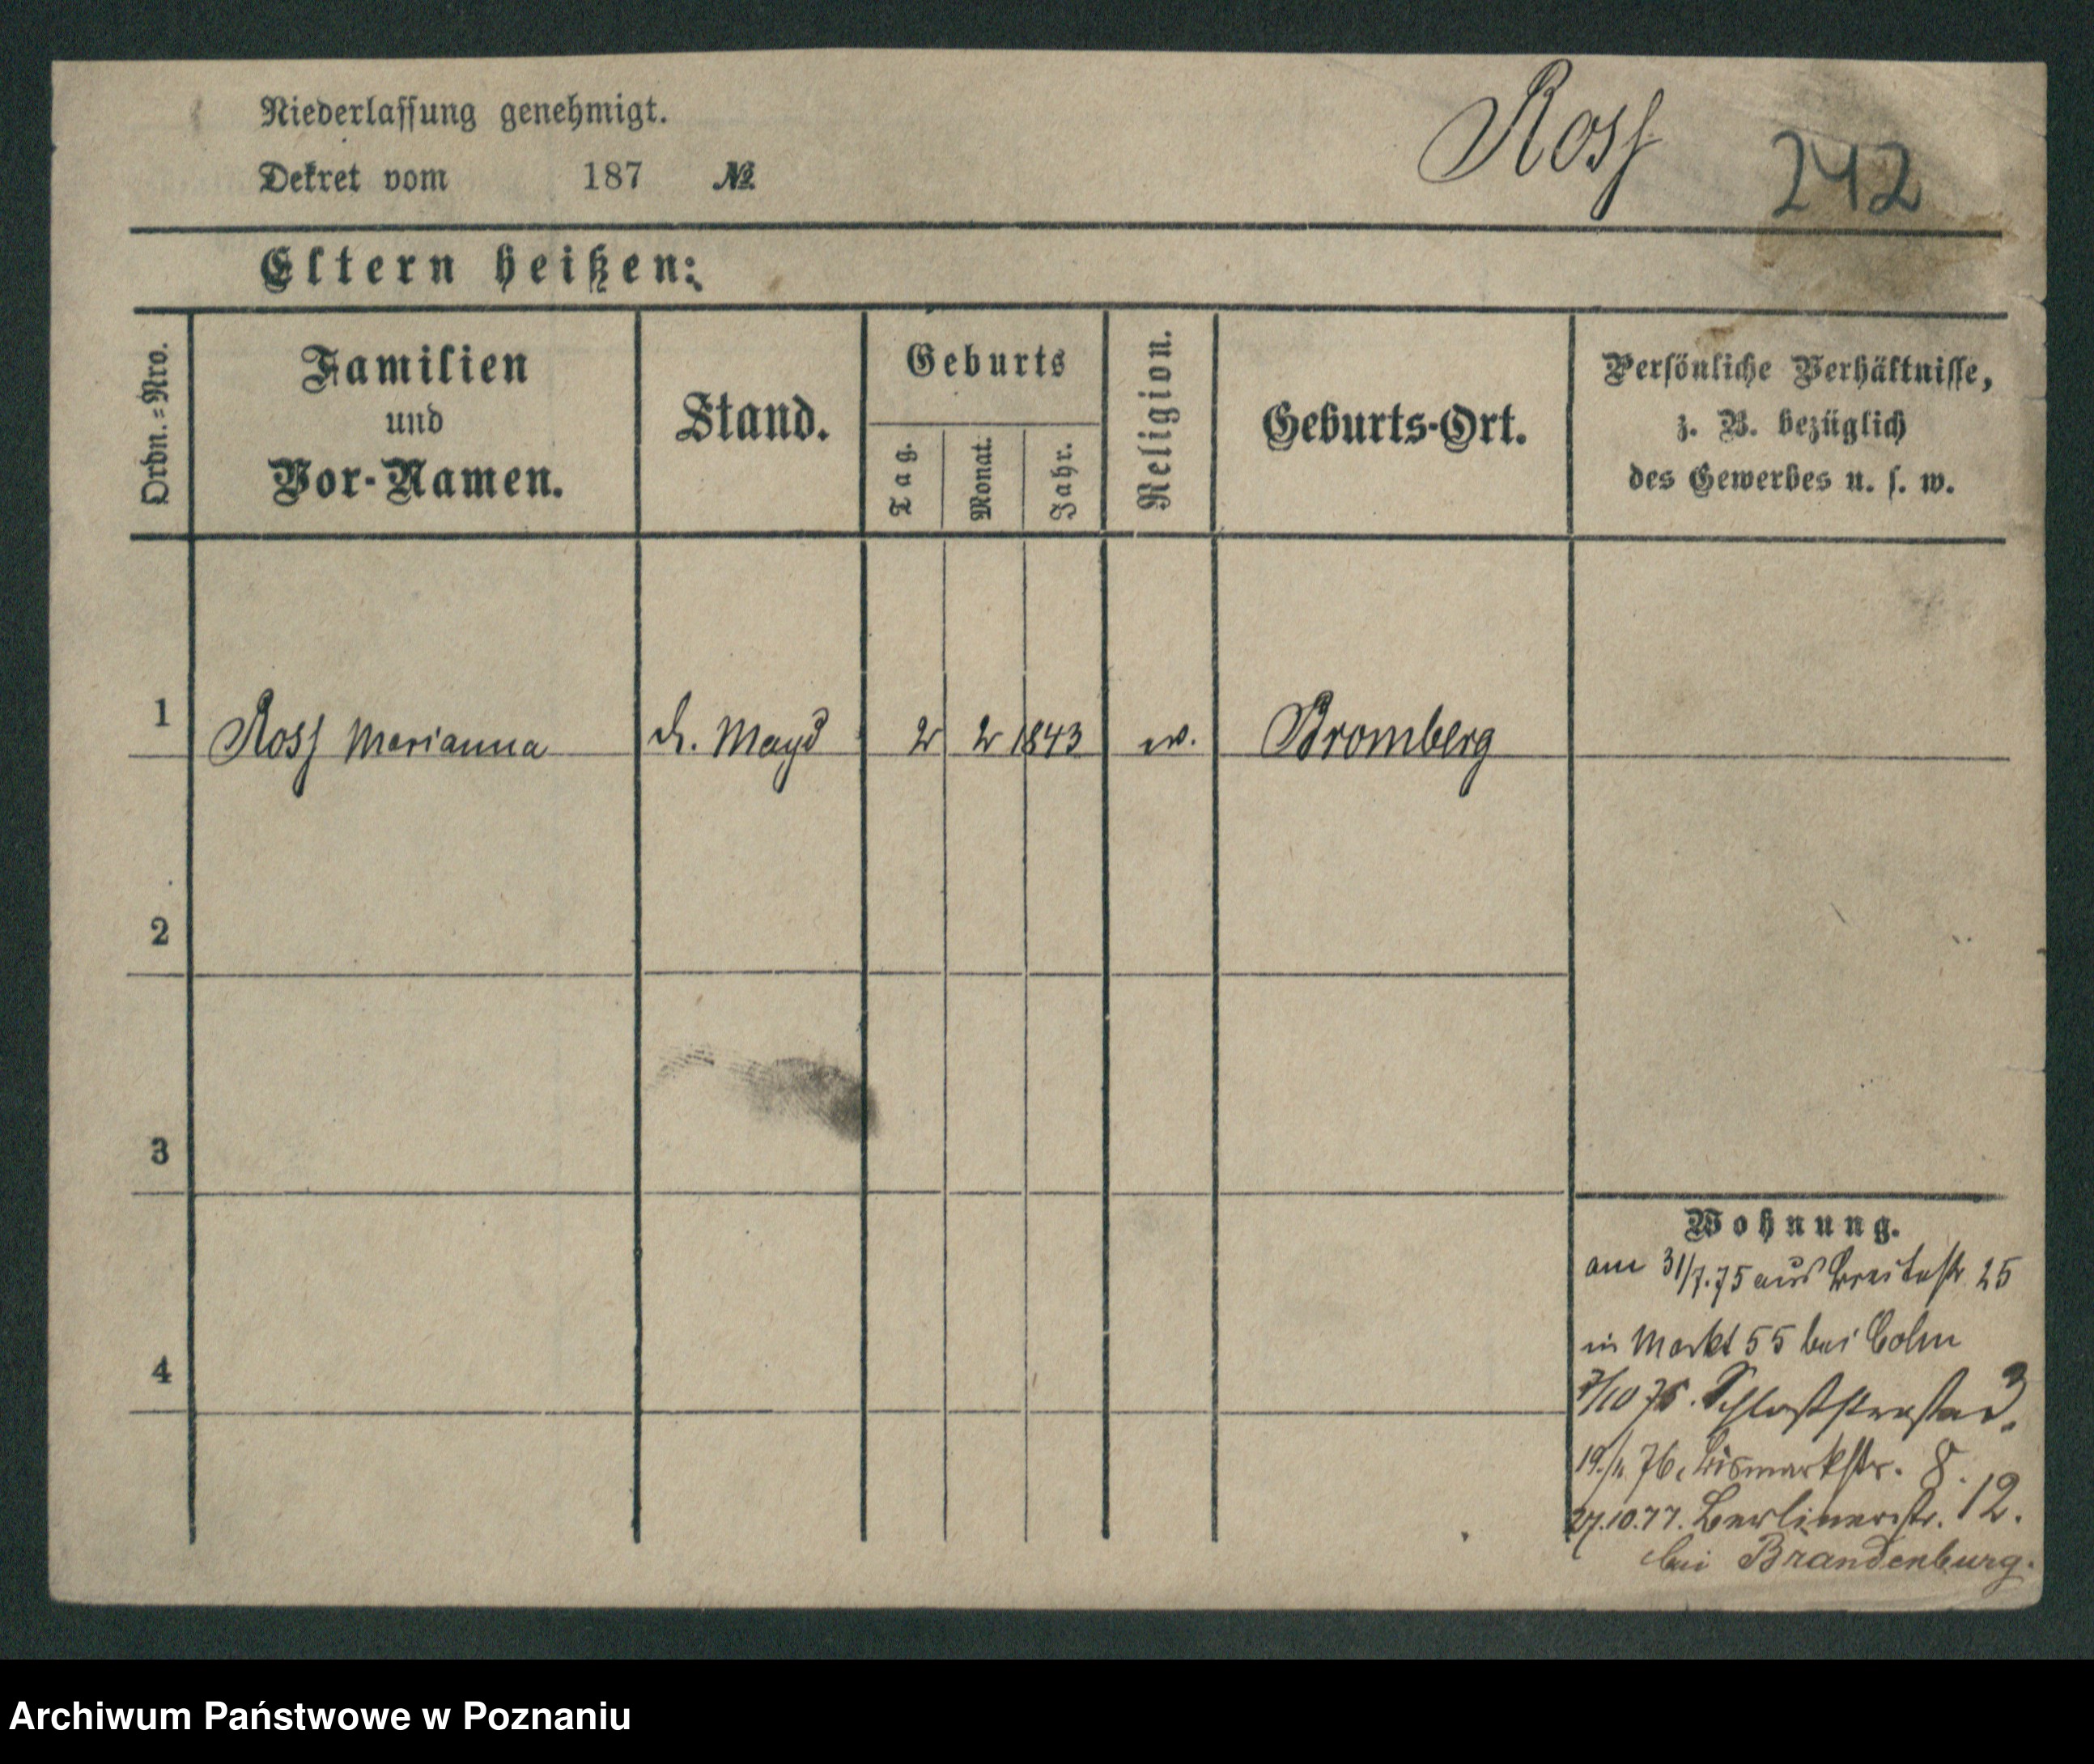 Niederlassung genehmigt.
Dekret vom 187 №
Ross
242
Eltern heißen:
Ordn.=Nro.
Familien
und
Vor-Namen.
Stand.
Geburts
Tag.
Monat.
Jahr.
Religion.
Geburts-Ort.
Persönliche Verhältnisse,
z. B. bezüglich
des Gewerbes u. s. w.
1 Ross Marianna d. Magd 2 2 1843 ev. Bromberg
2
3
4
Wohnung.
am 31/7. 75 aus Breitestr. 25
in Markt 55 bei Cohn
7/10 75. 3.
19./11. 76. Bismarkstr. 8.
27.10.77. Berlinerstr. 12.
bei Brandenburg.
Archiwum Państwowe w Poznaniu